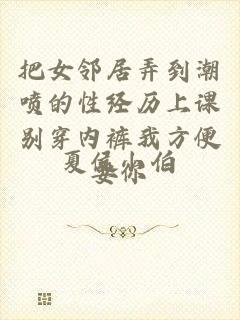 把女邻居弄到潮
喷的性经历上课
别穿内裤我方便
要你
夏侯小伯